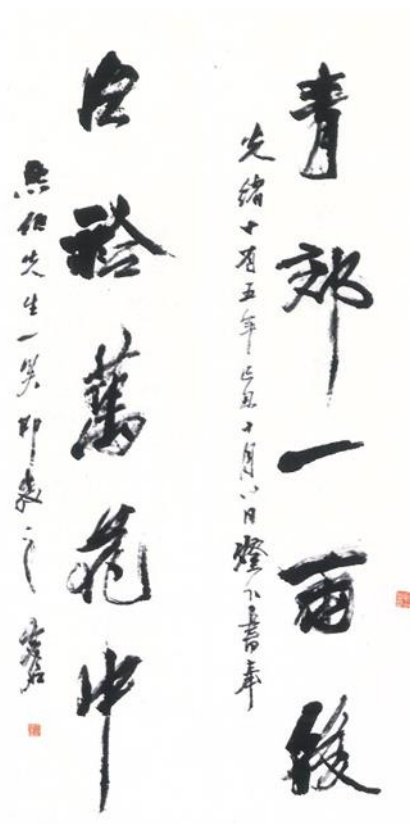 青郊一雨後
光緒十有五年己丑十月八日燈下書奉
白袷萬花中
先生一笑即教之